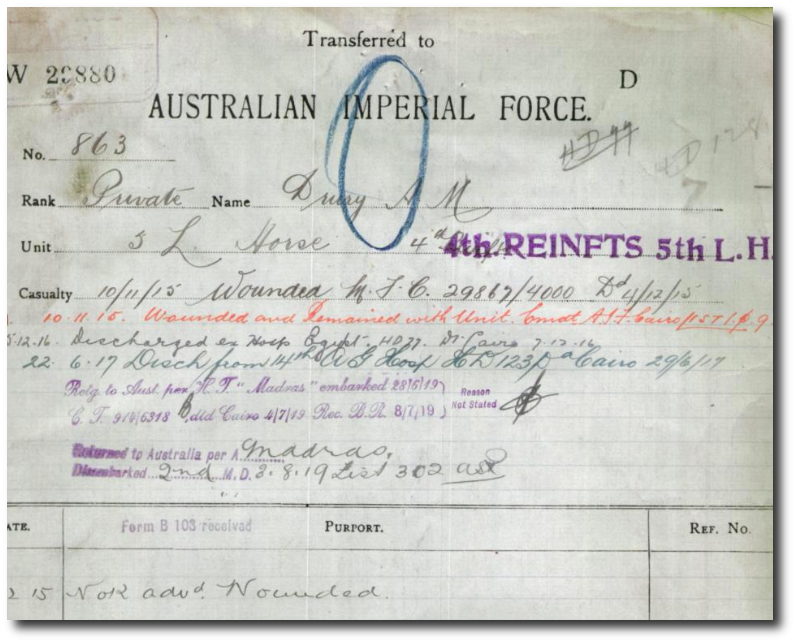 Transferred to
W 29880
D
AUSTRALIAN IMPERIAL FORCE.
No. 863
Rank Private Name Drury A M
Unit 5 L. Horse 4th. REINFTS 5th L.H.
Casualty 10/11/15 Wounded M.F.C. 29867/4000 Dd 4/12/15
10.11.15. Wounded and Remained with Unit. Cmdt A.I.F. Cairo
5.12.16. Discharged ex Hosp Egypt. HD77. Dt. Cairo 7.12.16
22.6.17 Disch from 14th A G Hosp HD 123 Cairo 29/6/17
Retg. to Aust. per H.T "Madras" embarked 28/6/19
Reason
Not Stated
dtd Cairo 4/7/19 Rec. B.R. 8/7/19
Returned to Australia per A Madras.
Disembarked 2nd M.D. 3.8.19 List 302
ATE.
Form B 103 received
PURPORT.
REF. NO.
15 NoK advd. Wounded.